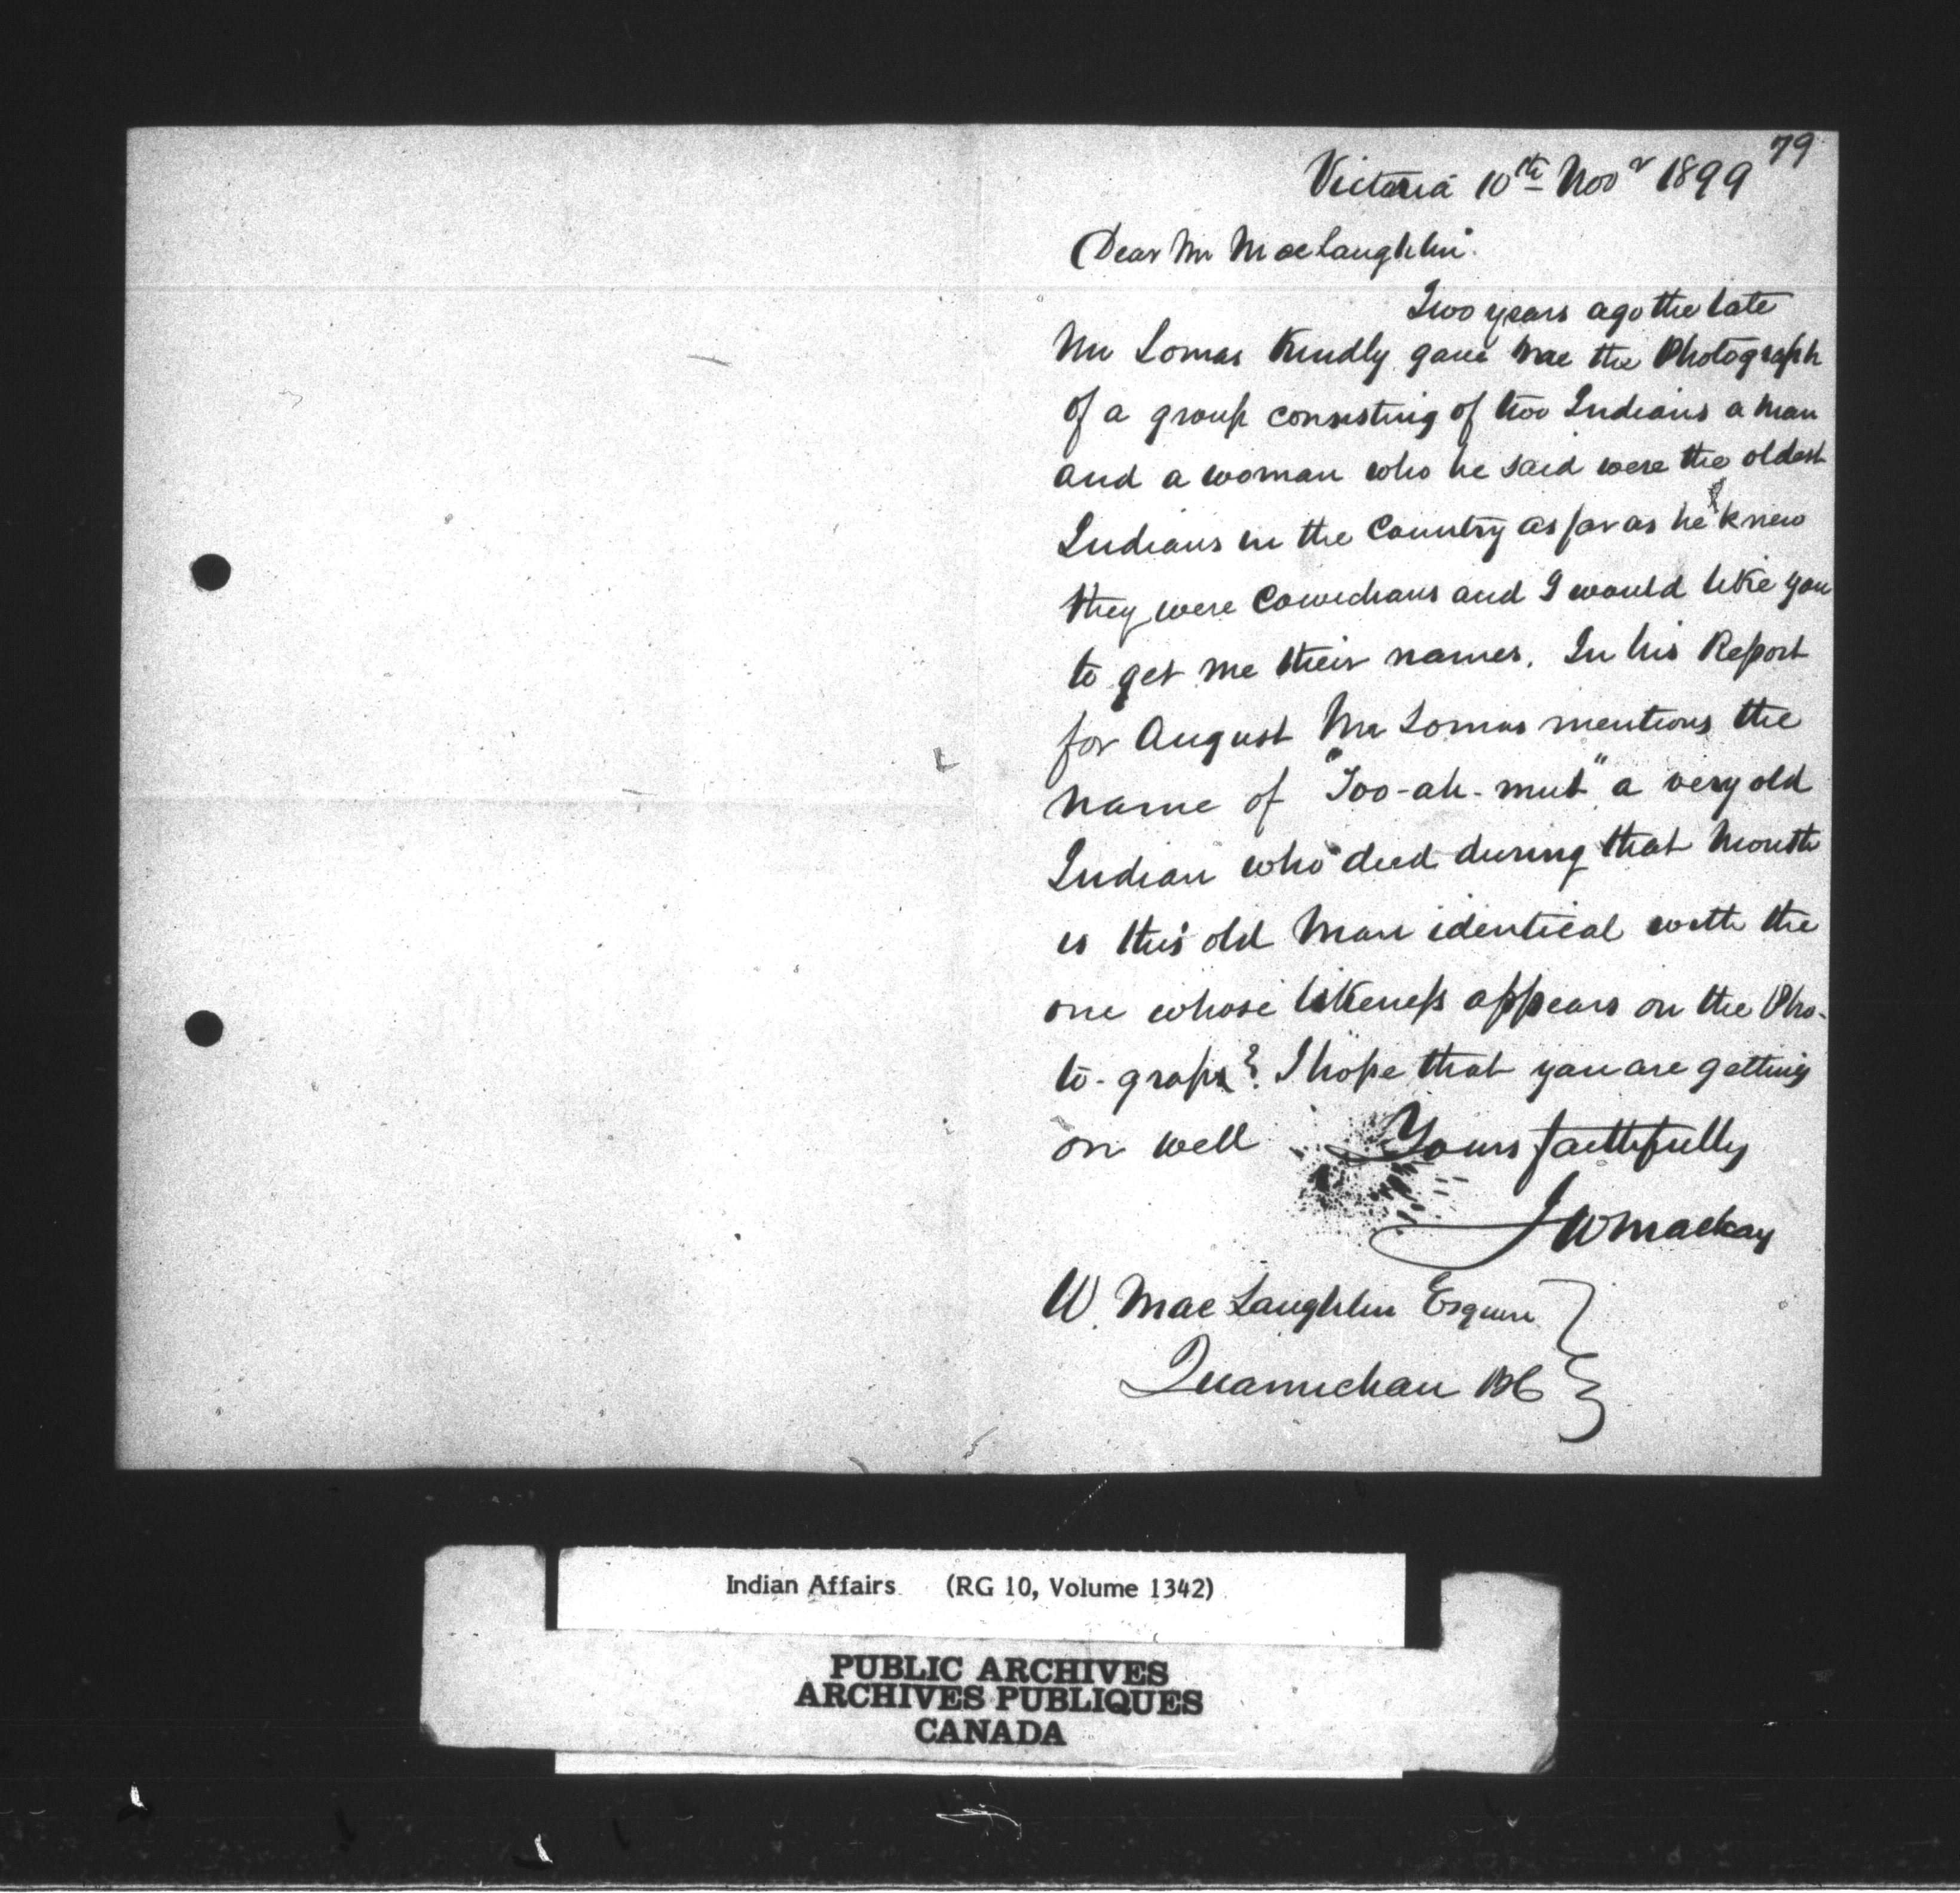 79
Victoria 10th Novr 1899
Dear Mr MacLaughlin.
Two years ago the late
Mr Lomas Kindly gave me the Photograph
of a group consisting of two Indians a man
and a woman who he said were the oldest
Indians in the Country as far as he knew
they were Cowichans and I would like you
to get me their names. In his Report
for August Mr Lomas mentions the
name of "Too-ah-mut" a very old
Indian who died during that Month
is this old Man identical with the
one whose likeness appears on the Pho-
to-graph? I hope that you are getting
on well Yours faithfully
J W Mackay
W. MacLaughlin Esquire
Quamichan BC
Indian Affairs. (RG 10, Volume 1342)
PUBLIC ARCHIVES
ARCHIVES PUBLIQUES
CANADA